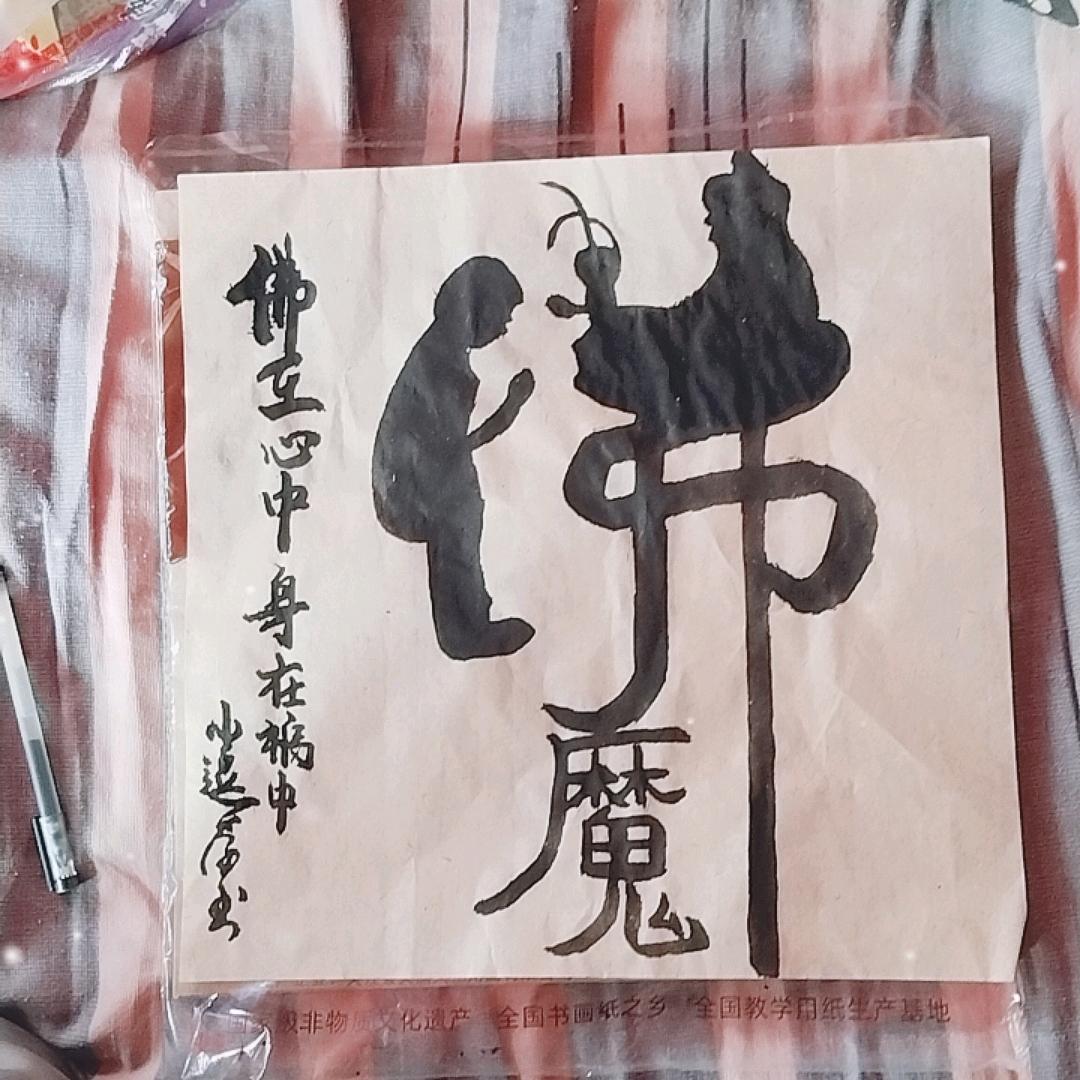 佛
魔
佛在心中 身在祸中
国家级非物质文化遗产 全国书画纸之乡 全国教学用纸生产基地